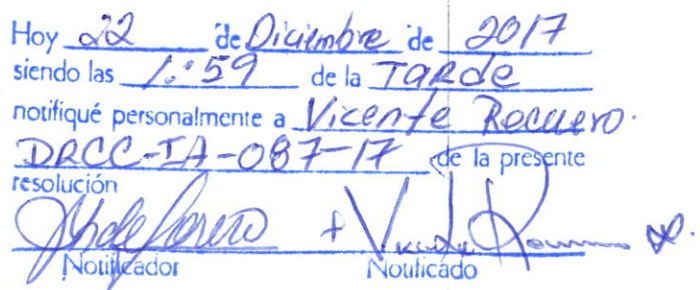 Hoy 22 de Diciembre de 2017
siendo las 1:59 de la Tarde
notifiqué personalmente a Vicente Recuero.
DRCC-IA-087-17 de la presente
resolución
Notificador Notificado